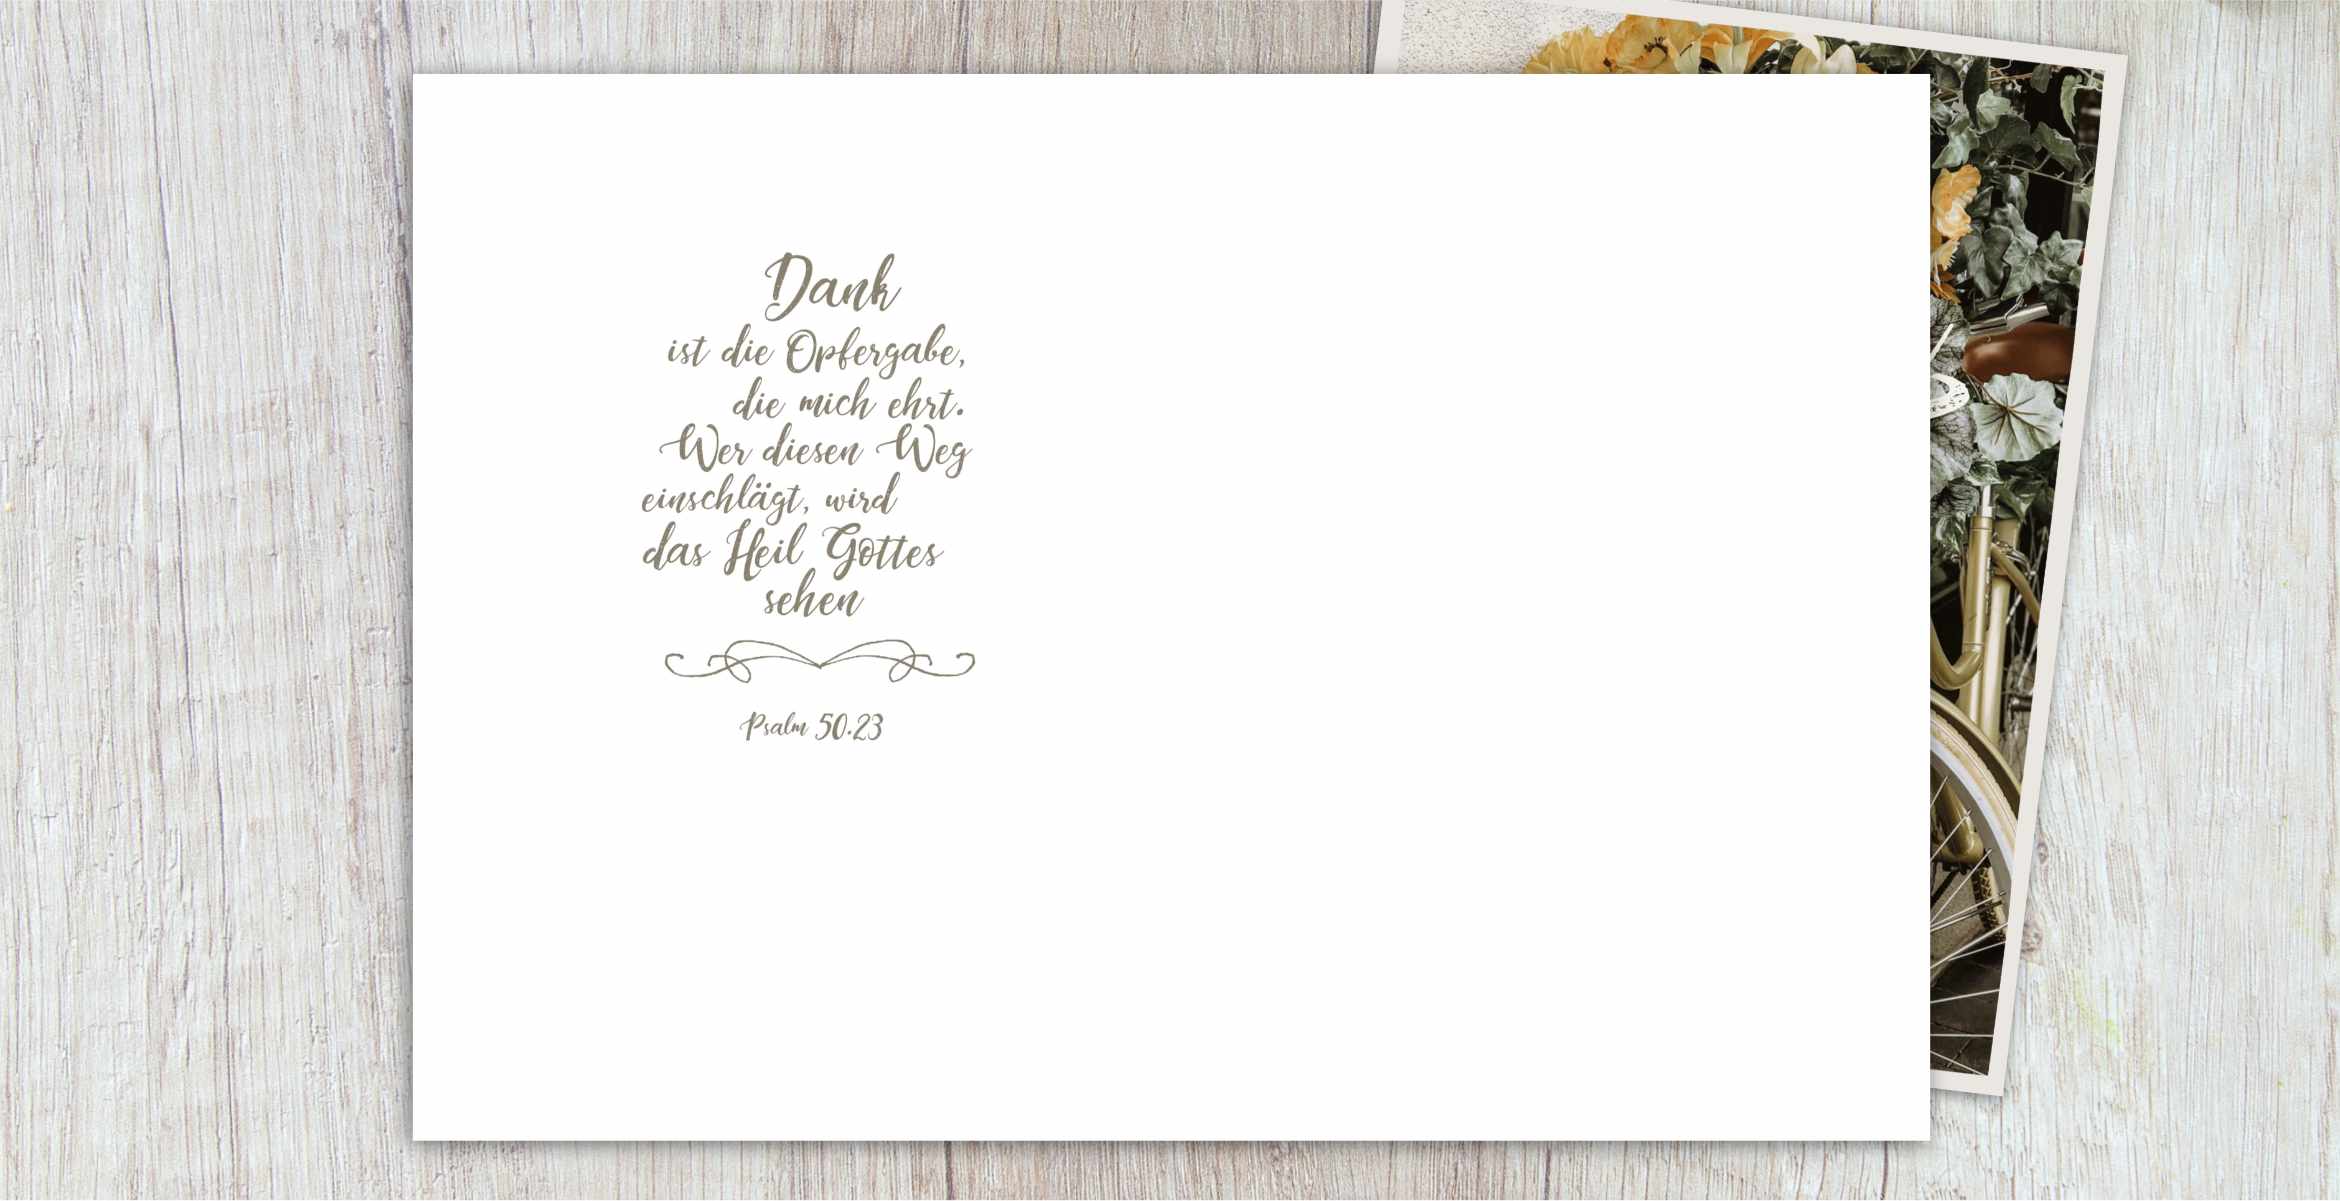 Dank
ist die Opfergabe,
die mich ehrt.
Wer diesen Weg
einschlägt, wird
das Heil Gottes
sehen
Psalm 50.23